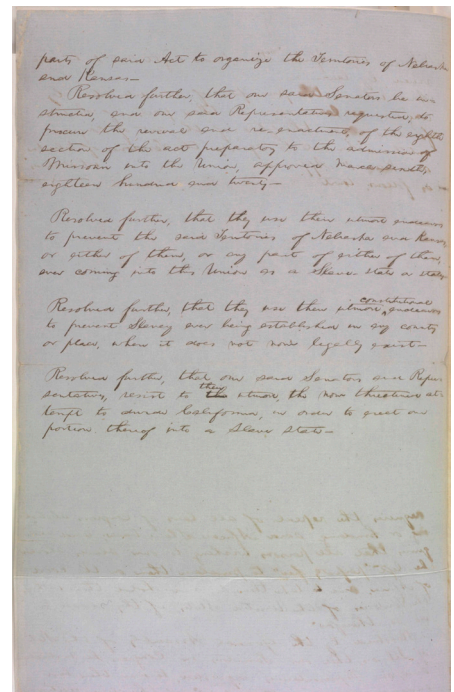 parts of said Act to organize the Territories of Nebraska
and Kansas—
Resolved further, that our said Senators be in-
structed, and our said Representatives requested, to
procure the revival and re-enactment, of the eighth
section of the act preparatory to the admission of
Missouri into the Union, approved March sixth,
eighteen hundred and twenty—
Resolved further, that they use their utmost endeavors
to prevent the said Territories of Nebraska and Kansas
or either of them, or any part of either of them,
ever coming into this Union as a Slave State or States
Resolved further, that they use their utmost constitutional endeavors
to prevent Slavery ever being established in any county
or place, where it does not now legally exist—
Resolved further, that our said Senators and Repre-
sentatives, resist to their utmost, the now threatened at-
tempt to divide California, in order to erect one
portion thereof into a Slave State—